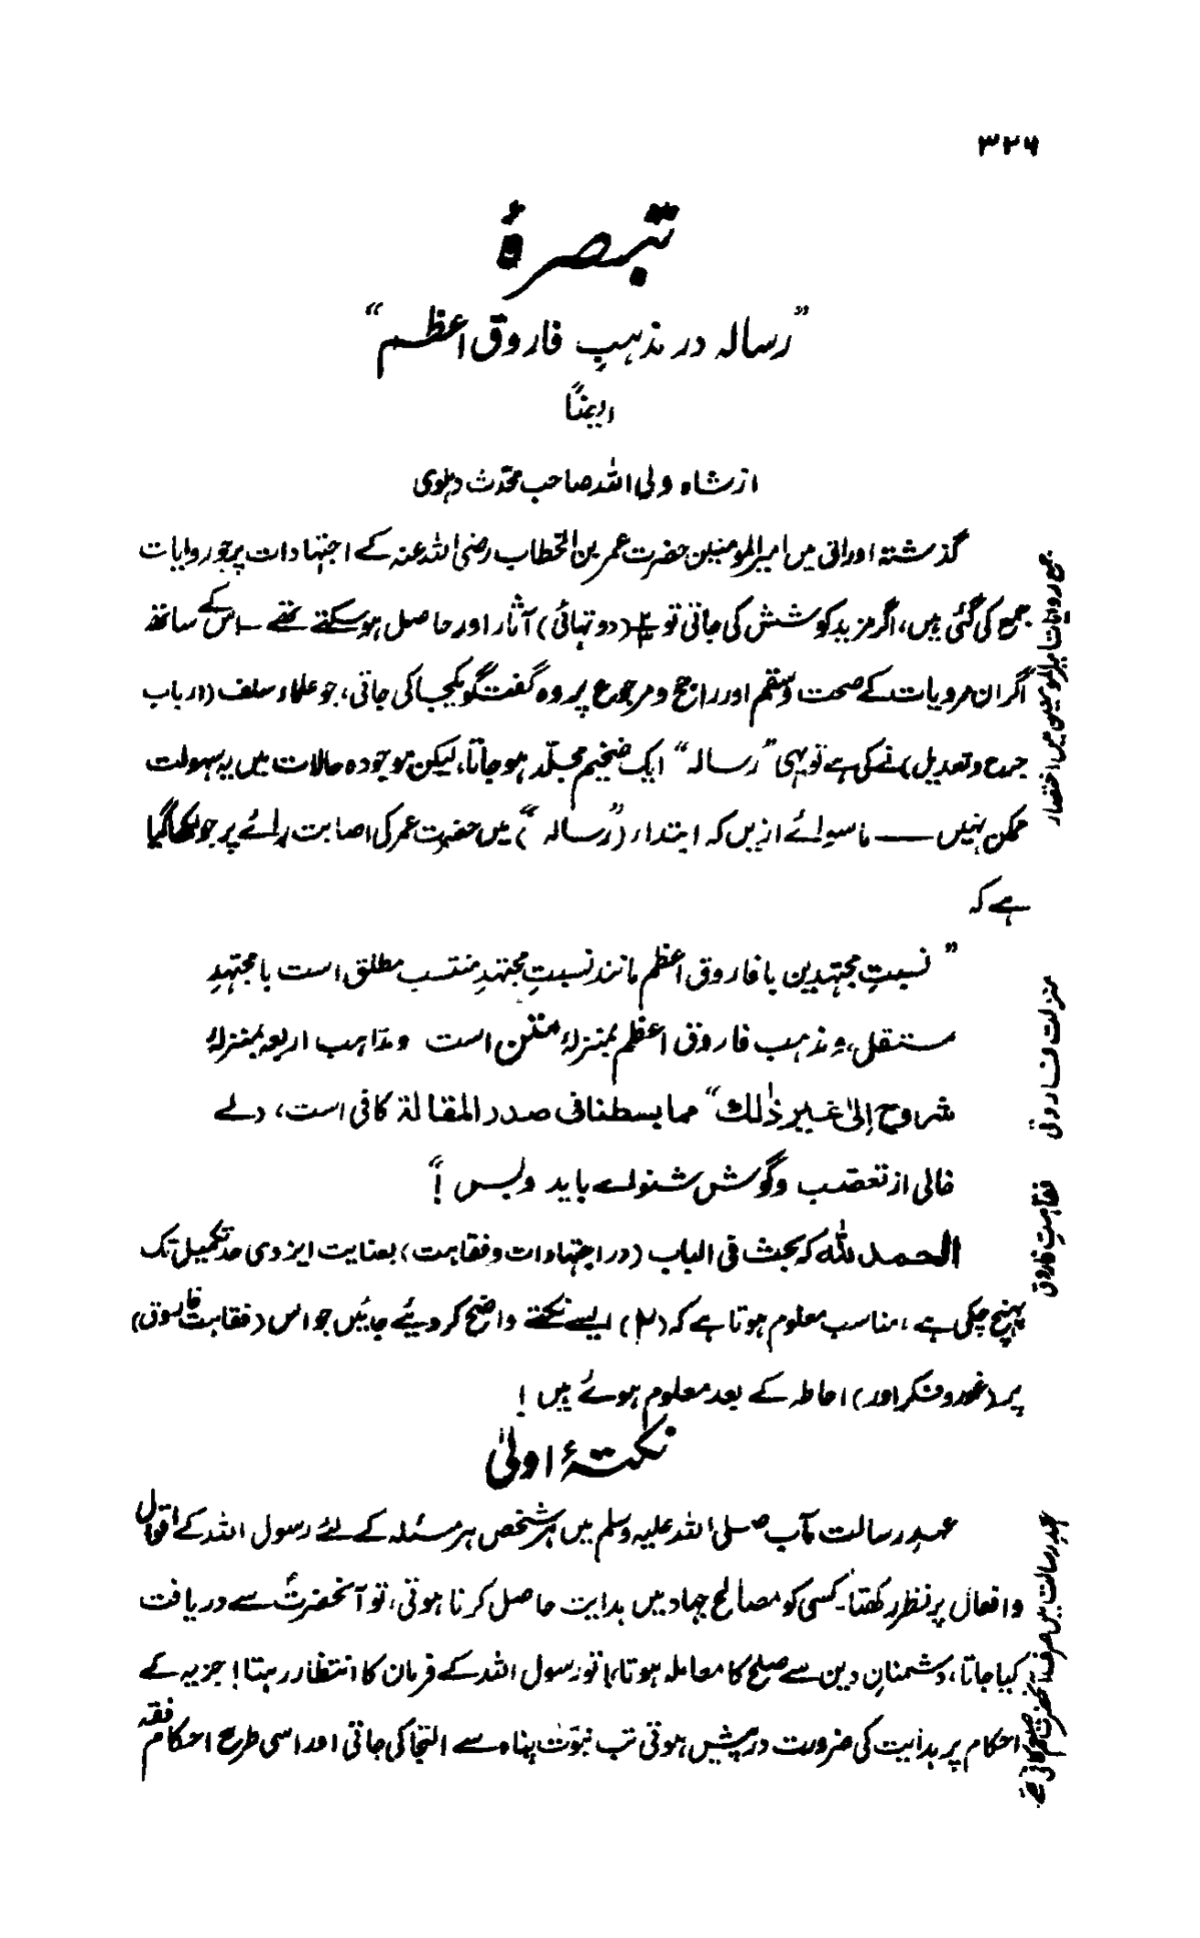 ۳۲۶
تبصرۂ
”رسالہ در مذہبِ فاروق اعظم“
ایضاً
از شاہ ولی اللہ صاحب محدّث دہلوی
گذشتہ اوراق میں امیرالمومنین حضرت عمر بن الخطاب رضی اللہ عنہ کے اجتہادات پر جو روایات
جمع کی گئی ہیں، اگر مزید کوشش کی جاتی تو ⅔ (دو تہائی) آثار اور حاصل ہو سکتے تھے ــ اس کے ساتھ
اگر ان مرویات کے صحت و سقم اور راجح و مرجوع پر وہ گفتگو یکجا کی جاتی، جو علماء سلف (ارباب
جرح و تعدیل) نے کی ہے تو یہی ”رسالہ“ ایک ضخیم مجلّد ہو جاتا، لیکن موجودہ حالات میں یہ سہولت
ممکن نہیں ــــ ماسوائے ازیں کہ ابتداء (”رسالہ“) میں حضرت عمر کی اصابت رائے پر جو لکھا گیا
ہے کہ
”نسبتِ مجتہدین با فاروق اعظم مانند نسبتِ مجتہدِ منتسب مطلق است با مجتہدِ
مستقل، و مذہب فاروق اعظم بمنزلۂ متن است و مذاہب اربعہ بمنزلۂ
شروح إلیٰ غیر ذٰلك“ مما بسطنا فی صدر المقالة کافی است، دلے
خالی از تعصّب و گوش شنولے باید و بس!“
الحمد للہ کہ بحث فی الباب (در اجتہادات و فقاہت) بعنایت ایزدی حد تکمیل تک
پہنچ چکی ہے، مناسب معلوم ہوتا ہے کہ (۲) ایسے نکتے واضح کر دیئے جائیں جو اس (فقاہت فاروق)
پر (غور و فکر اور) احاطہ کے بعد معلوم ہوئے ہیں!
نکتۂ اولیٰ
عہدِ رسالت مآب صلی اللہ علیہ وسلم میں ہر شخص ہر مسئلہ کے لئے رسول اللہ کے اقوال
و افعال پر نظر رکھتا۔ کسی کو مصالح جہاد میں ہدایت حاصل کرنا ہوتی، تو آنحضرتؐ سے دریافت
کیا جاتا، دشمنانِ دین سے صلح کا معاملہ ہوتا، تو رسول اللہ کے فرمان کا انتظار رہتا! جزیہ کے
احکام پر ہدایت کی ضرورت درپیش ہوتی تب نبوّت پناہ سے التجا کی جاتی اور اسی طرح احکام فقہ
جمع روایات امیرالمومنین میں اختصار
منزلت فاروقی
فقاہتِ فاروق
عہدِ رسالت میں صرف آنحضرت صلعم کافی تھے